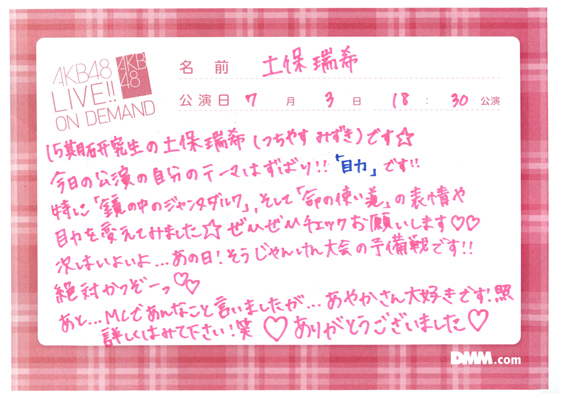 AKB48
LIVE!!
ON DEMAND
AKB
48
名前 土保瑞希
公演日 7月 3日 18:30公演
15期研究生の土保瑞希(つちやす みずき)です☆
今日の公演の自分のテーマはずばり!!「目力」です!!
特に「鏡の中のジャンヌダルク」、そして「命の使い道」の表情や
目力を変えてみました☆ぜひぜひチェックお願いします♡♡
次はいよいよ...あの日!そうじゃんけん大会の予備戦です!!
絶対かつぞーっ♡♡
あと...MCであんなこと言いましたが...あやかさん大好きです!照
詳しくはみて下さい!笑 ♡ありがとうございました♡
DMM.com